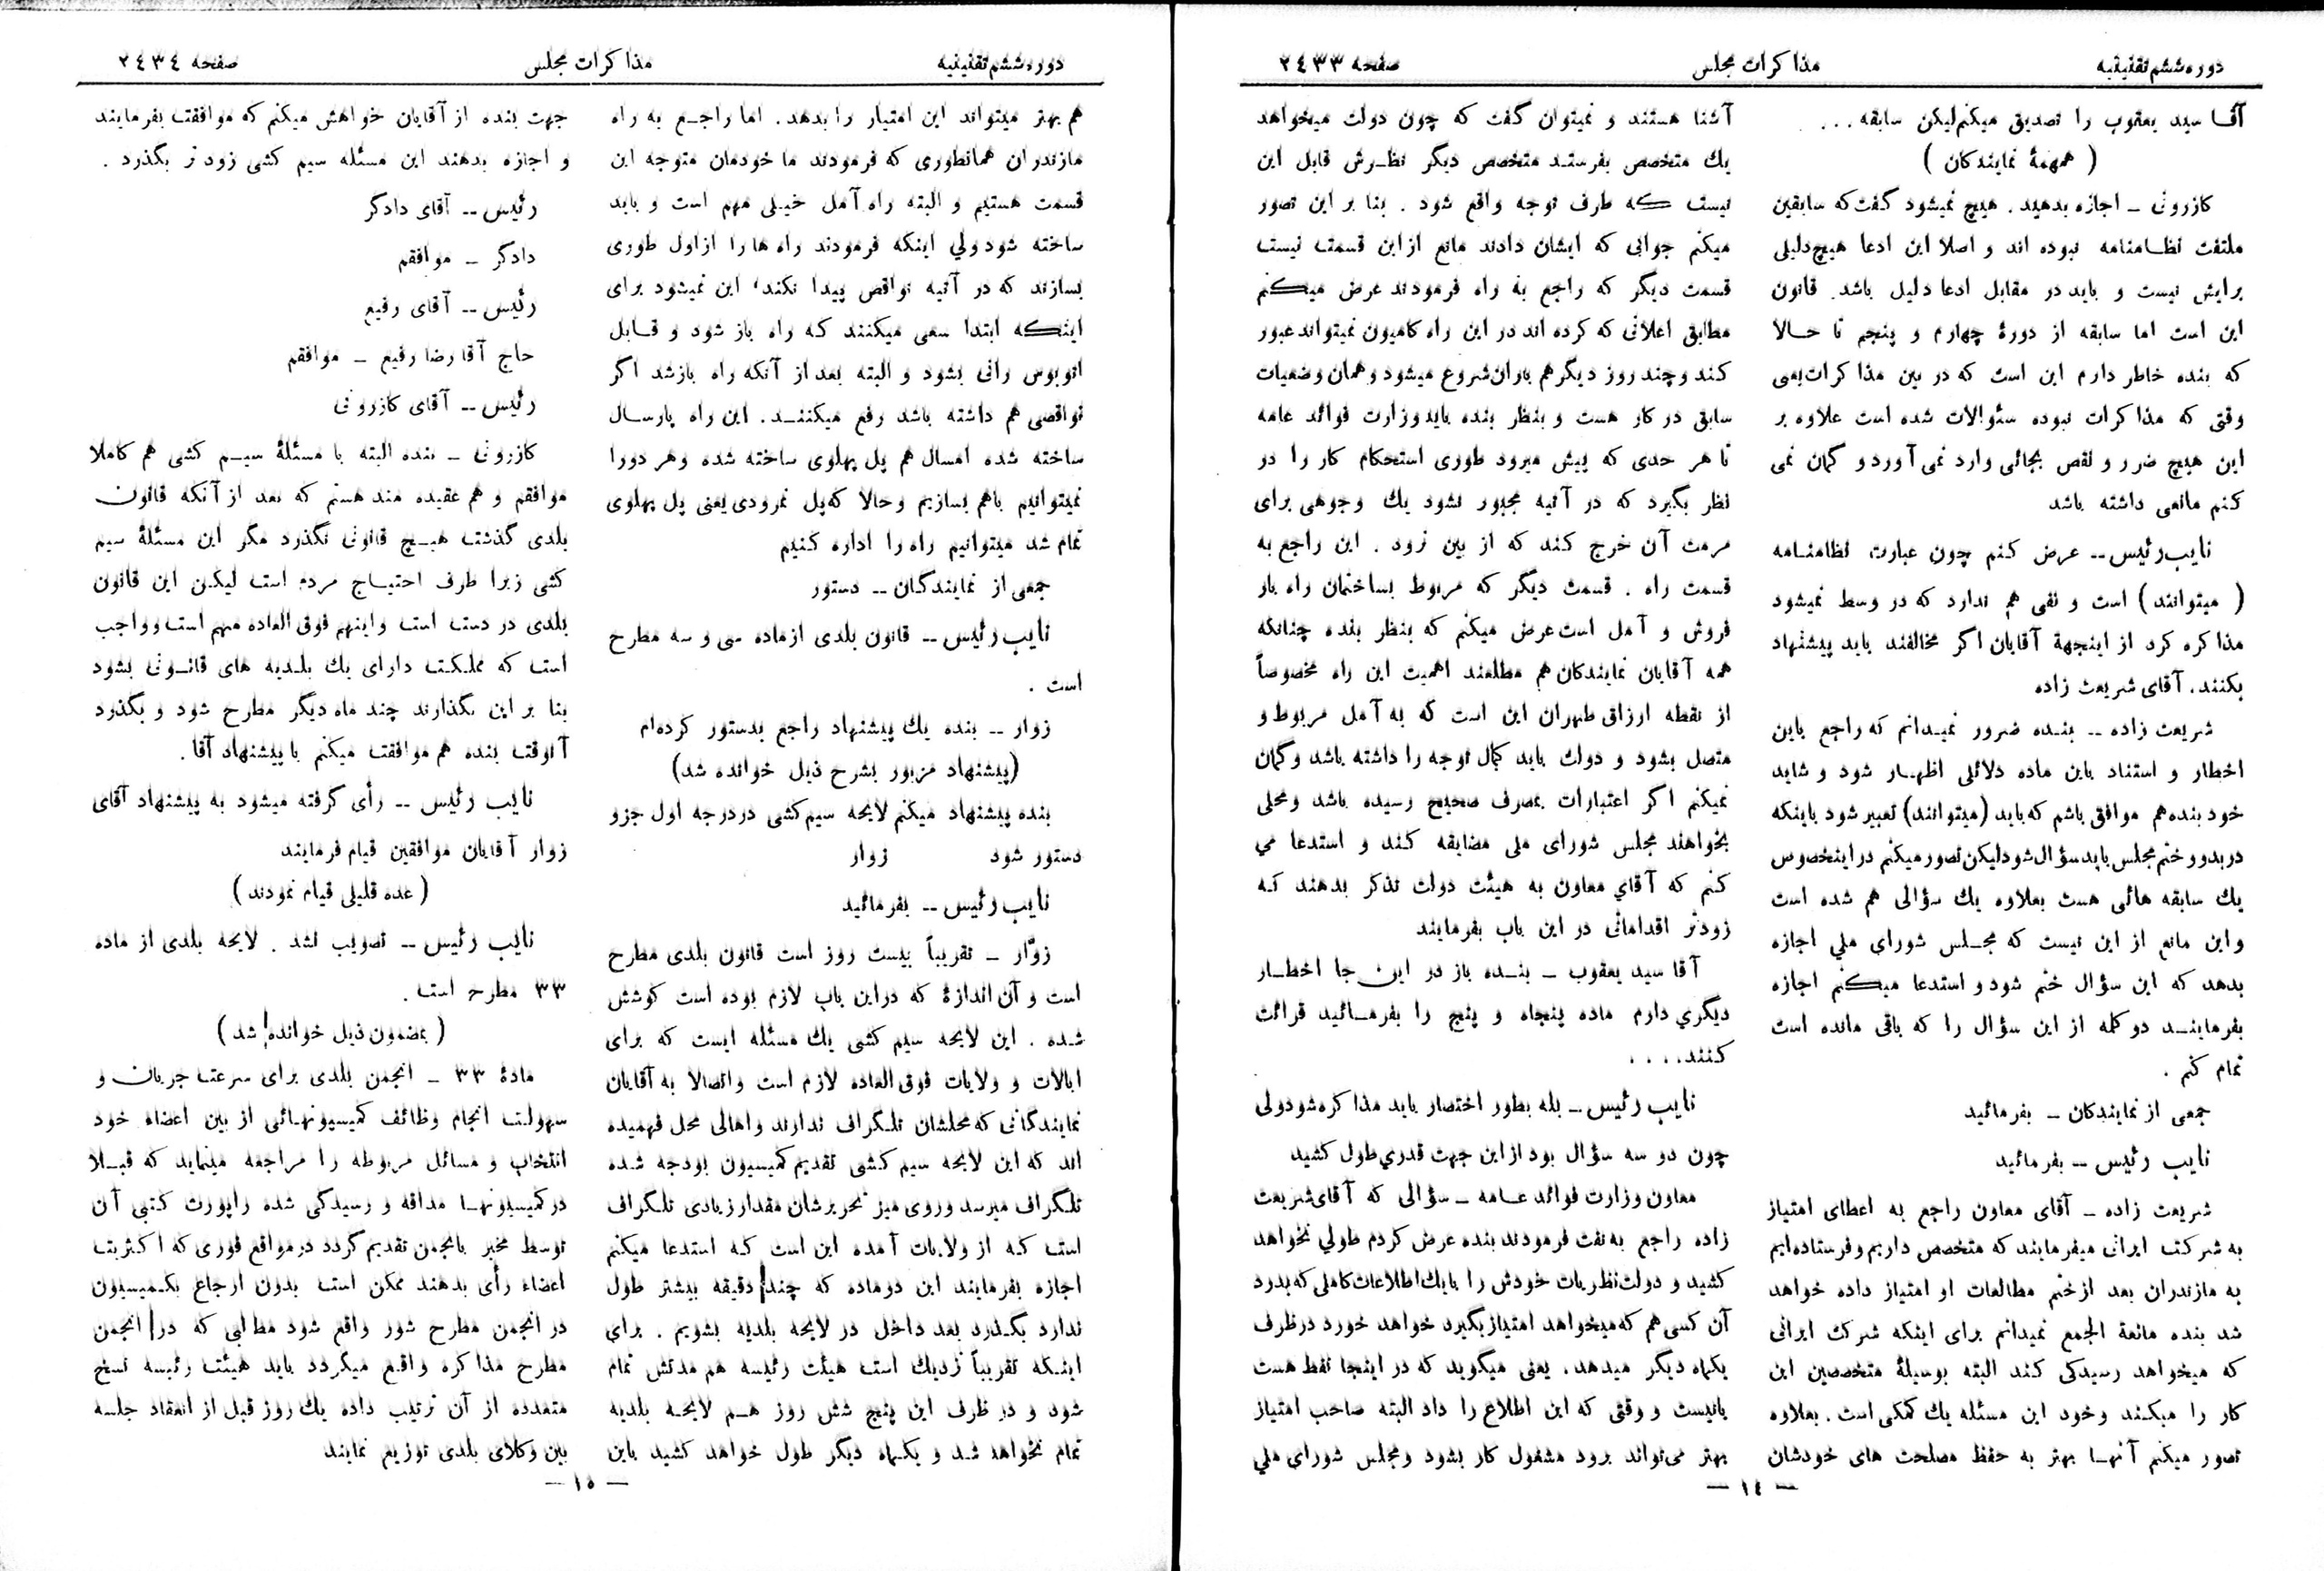 دوره ششم تقنینیه مذاکرات مجلس صفحه ۲٤۳۳
آقا سید یعقوب را تصدیق میکنم لیکن سابقه ...
( همهمهٔ نمایندکان )
کازرونی ــ اجازه بدهید. هیچ نمیشود گفت که سابقین
ملتفت نظامنامه نبوده اند و اصلا این ادعا هیچ دلیلی
برایش نیست و باید در مقابل ادعا دلیل باشد. قانون
این است اما سابقه از دورهٔ چهارم و پنجم تا حالا
که بنده خاطر دارم این است که در بین مذاکرات یعی
وقتی که مذاکرات نبوده سئوالات شده است علاوه بر
این هیچ ضرر و نقص بجائی وارد نمی آورد و گمان نمی
کنم مانعی داشته باشد
نایب رئیس ــ عرض کنم چون عبارت نظامنامه
( میتوانند ) است و نفی هم ندارد که در وسط نمیشود
مذاکره کرد از اینجهة آقایان اگر مخالفند باید پیشنهاد
بکنند. آقای شریعت زاده
شریعت زاده ــ بنده ضرور نمیدانم که راجع باین
اخطار و استناد باین ماده دلائلی اظهار شود و شاید
خود بنده هم موافق باشم که باید (میتوانند) تعبیر شود باینکه
در بدو و ختم مجلس باید سؤال شود لیکن تصور میکنم در اینخصوص
یك سابقه هائی هست بعلاوه یك سؤالی هم شده است
و این مانع از این نیست که مجلس شورای ملي اجازه
بدهد که این سؤال ختم شود و استدعا میکنم اجازه
بفرمایند دو کله از این سؤال را که باقی مانده است
تمام کنم .
جمعی از نمایندکان ــ بفرمائید
نایب رئیس ــ بفرمائید
شریعت زاده ــ آقای معاون راجع به اعطای امتیاز
به شرکت ایرانی میفرمایند که متخصص داریم و فرستاده ایم
به مازندران بعد از ختم مطالعات او امتیاز داده خواهد
شد بنده مانعة الجمع نمیدانم برای اینکه شرکت ایرانی
که میخواهد رسیدکی کند البته بوسیلهٔ متخصصین این
کار را میکند و خود این مسئله یك کمکی است. بعلاوه
تصور میکنم آنها بهتر به حفظ مصلحت های خودشان
آشنا هستند و نمیتوان گفت که چون دولت میخواهد
یك متخصص بفرستد متخصص دیگر نظرش قابل این
نیست که طرف توجه واقع شود . بنا بر این تصور
میکنم جوابی که ایشان دادند مانع از این قسمت نیست
قسمت دیگر که راجع به راه فرمودند عرض میکنم
مطابق اعلانی که کرده اند در این راه کامیون نمیتواند عبور
کند و چند روز دیگر هم باران شروع میشود و همان وضعیات
سابق در کار هست و بنظر بنده باید وزارت فوائد عامه
تا هر حدی که پیش میرود طوری استحکام کار را در
نظر بگیرد که در آتیه مجبور نشود یك وجوهی برای
مرمت آن خرج کند که از بین نرود . این راجع به
قسمت راه . قسمت دیگر که مربوط بساختمان راه بار
فروش و آمل است عرض میکنم که بنظر بنده چنانکه
همه آقایان نمایندکان هم مطلعند اهمیت این راه مخصوصاً
از نقطه ارزاق طهران این است که به آمل مربوط و
متصل بشود و دولت باید کمال توجه را داشته باشد و گمان
نمیکنم اگر اعتبارات بمصرف صحیح رسیده باشد و محلی
بخواهند مجلس شورای ملی مضایقه کند و استدعا می
کنم که آقاي معاون به هیئت دولت تذکر بدهند که
زودتر اقداماتی در این باب بفرمایند
آقا سید یعقوب ــ بنده باز در این جا اخطار
دیگري دارم ماده پنجاه و پنج را بفرمائید قرائت
کنند....
نایب رئیس ــ بله بطور اختصار باید مذاکره شود ولی
چون دو سه سؤال بود از این جهت قدري طول کشید
معاون وزارت فوائد عامه ــ سؤالی که آقای شریعت
زاده راجع به نفت فرمودند بنده عرض کردم طولي نخواهد
کشید و دولت نظریات خودش را با یك اطلاعات کاملی که بدرد
آن کسی هم که میخواهد امتیاز بگیرد خواهد خورد در ظرف
یکماه دیگر میدهد. یعنی میگوید که در اینجا نفط هست
یا نیست و وقتی که این اطلاع را داد البته صاحب امتیاز
بهتر می تواند برود مشغول کار بشود و مجلس شورای ملي
— ۱٤ —
دوره ششم تقنینیه مذاکرات مجلس صفحه ۲٤۳٤
هم بهتر میتواند این امتیار را بدهد. اما راجع به راه
مازندران همانطوری که فرمودند ما خودمان متوجه این
قسمت هستیم و البته راه آمل خیلی مهم است و باید
ساخته شود ولي اینکه فرمودند راه ها را از اول طوری
بسازند که در آتیه نواقص پیدا نکند، این نمیشود برای
اینکه ابتدا سعی میکنند که راه باز شود و قابل
اتوبوس رانی بشود و البته بعد از آنکه راه باز شد اگر
نواقصی هم داشته باشد رفع میکنند. این راه پارسال
ساخته شده امسال هم پل پهلوی ساخته شده و هر دورا
نمیتوانیم باهم بسازیم و حالا که پل نمرودی یعنی پل پهلوی
تمام شد میتوانیم راه را اداره کنیم
جمعی از نمایندگان ــ دستور
نایب رئیس ــ قانون بلدی از ماده سی و سه مطرح
است .
زوار ــ بنده یك پیشنهاد راجع بدستور کرده‌ام
(پیشنهاد مزبور بشرح ذیل خوانده شد)
بنده پیشنهاد میکنم لایحه سیم کشی در درجه اول جزو
دستور شود زوار
نایب رئیس ــ بفرمائید
زوّار ــ تقریباً بیست روز است قانون بلدی مطرح
است و آن اندازهٔ که در این باب لازم بوده است کوشش
شده . این لایحه سیم کشی یك مسئله ایست که برای
ایالات و ولایات فوق العاده لازم است و اتصالا به آقایان
نمایندگانی که محلشان تلگراف ندارند و اهالی محل فهمیده
اند که این لایحه سیم کشی تقدیم کمیسیون بودجه شده
تلگراف میرسد و روی میز تحریرشان مقدار زیادی تلگراف
است که از ولایات آمده این است که استدعا میکنم
اجازه بفرمایند این دو ماده که چند دقیقه بیشتر طول
ندارد بگذرد بعد داخل در لایحه بلدیه بشویم . برای
اینکه تقریباً نزدیك است هیئت رئیسه هم مدتش تمام
شود و در ظرف این پنج شش روز هم لایحه بلدیه
تمام نخواهد شد و یکماه دیگر طول خواهد کشید باین
جهت بنده از آقایان خواهش میکنم که موافقت بفرمایند
و اجازه بدهند این مسئله سیم کشی زودتر بگذرد .
رئیس ــ آقای دادگر
دادگر ــ موافقم
رئیس ــ آقای رفیع
حاج آقا رضا رفیع ــ موافقم
رئیس ــ آقای کازرونی
کازرونی ــ بنده البته با مسئلهٔ سیم کشی هم کاملا
موافقم و هم عقیده مند هستم که بعد از آنکه قانون
بلدی گذشت هیچ قانونی نگذرد مگر این مسئلهٔ سیم
کشی زیرا طرف احتیاج مردم است لیکن این قانون
بلدی در دست است و اینهم فوق العاده مهم است و واجب
است که مملکت دارای یك بلدیه های قانونی بشود
بنا بر این نگذارند چند ماه دیگر مطرح شود و بگذرد
آنوقت بنده هم موافقت میکنم با پیشنهاد آقا.
نایب رئیس ــ رأی گرفته میشود به پیشنهاد آقای
زوار آقایان موافقین قیام فرمایند
( عده قلیلی قیام نمودند )
نایب رئیس ــ تصویب نشد . لایحه بلدی از ماده
۳۳ مطرح است .
( بمضمون ذیل خوانده شد )
مادهٔ ۳۳ ــ انجمن بلدی برای سرعت جریان و
سهولت انجام وظائف کمیسیونهائی از بین اعضاء خود
انتخاب و مسائل مربوطه را مراجعه مینماید که قبلا
در کمیسیونها مداقه و رسیدگی شده راپورت کتبی آن
توسط مخبر بانجمن تقدیم گردد در مواقع فوری که اکثریت
اعضاء رأی بدهند ممکن است بدون ارجاع بکمیسیون
در انجمن مطرح شور واقع شود مطالبی که در انجمن
مطرح مذاکره واقع میگردد باید هیئت رئیسه نسخ
متعدده از آن ترتیب داده یك روز قبل از انعقاد جلسه
بین وکلای بلدی توزیع نمایند
— ۱۵ —